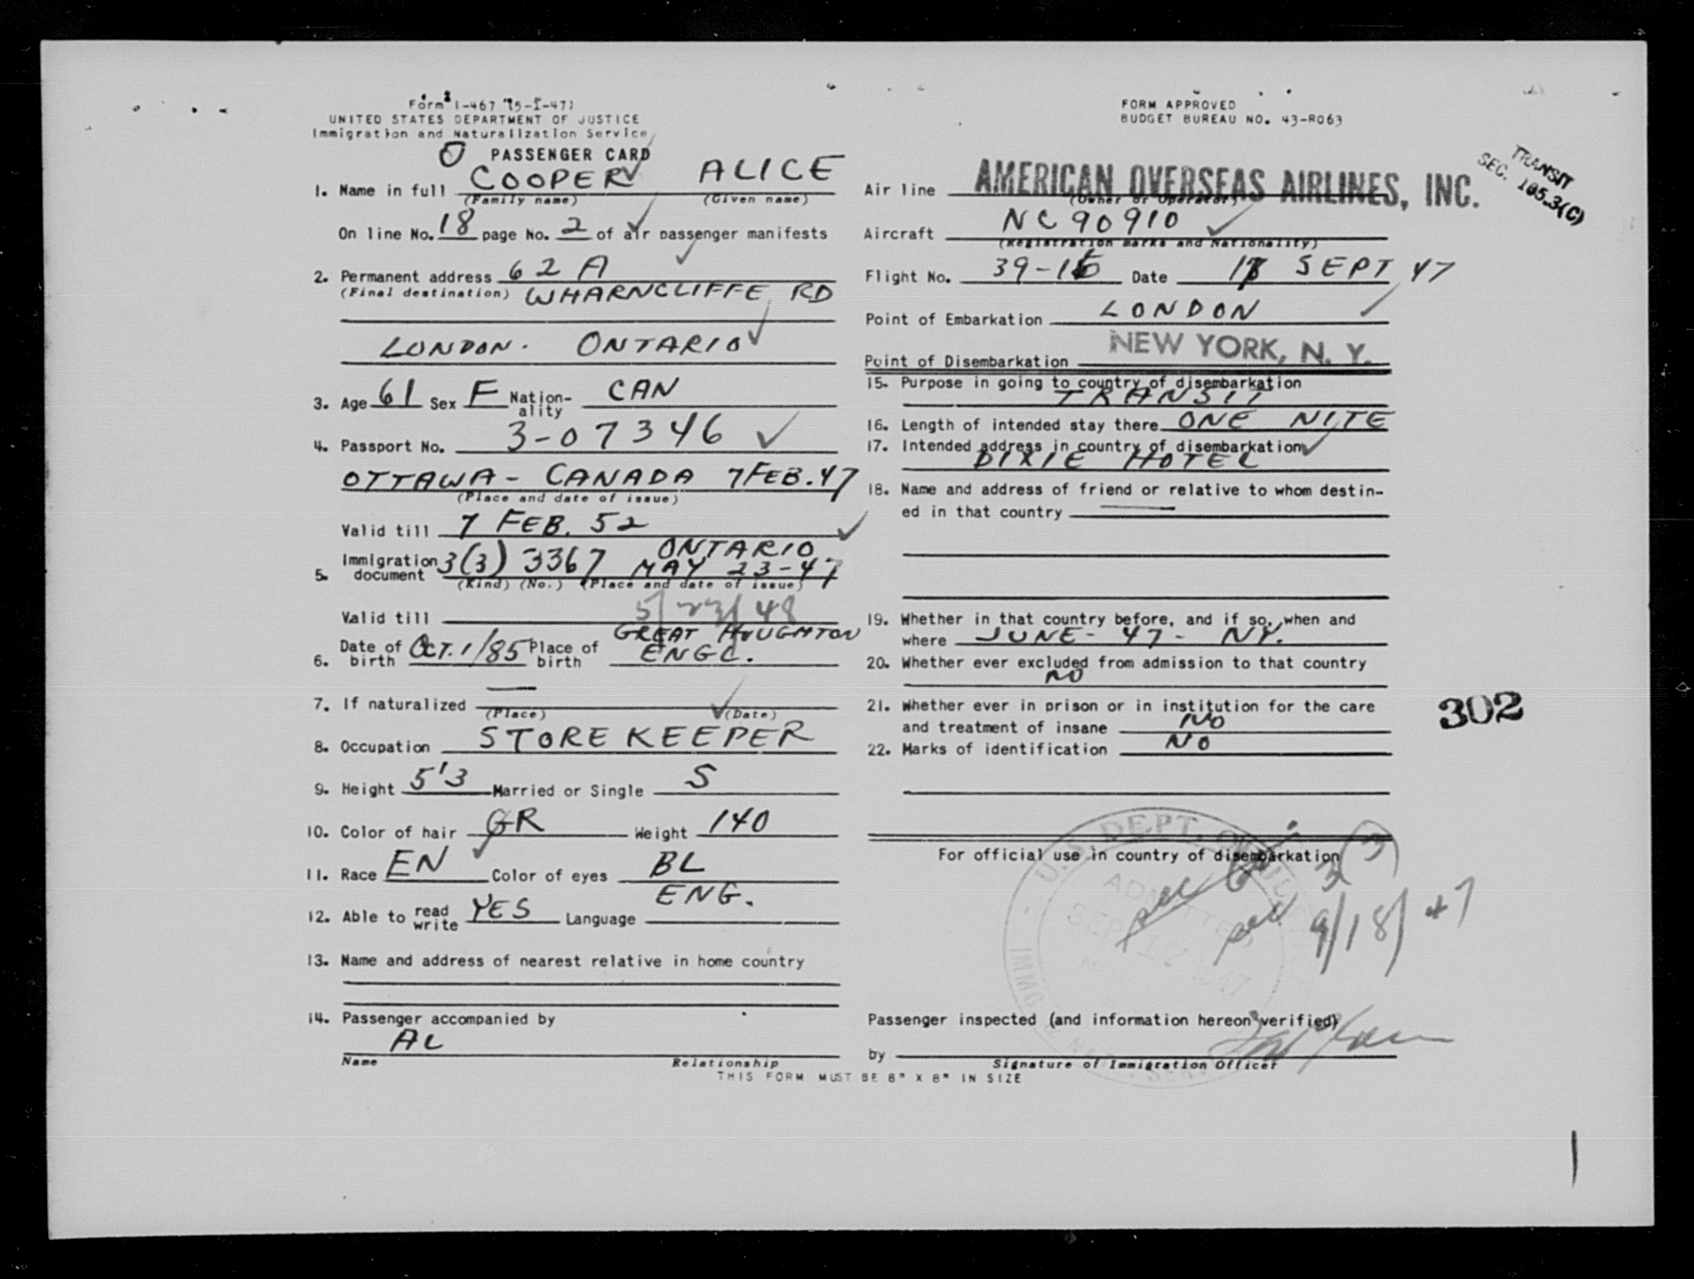 Form I-467 (5-1-47)
UNITED STATES DEPARTMENT OF JUSTICE
Immigration and Naturalization Service
PASSENGER CARD
1. Name in full COOPER ALICE
(Family name) (Given name)
On line No. 18 page No. 2 of air passenger manifests
2. Permanent address 62 A
(Final destination) WHARNCLIFFE RD
LONDON. ONTARIO
3. Age 61 Sex F Nation-ality CAN
4. Passport No. 3-07346
OTTAWA - CANADA 7 FEB. 47
(Place and date of issue)
Valid till 7 FEB. 52
5. Immigration document 3(3) 3367 ONTARIO. MAY 23-47
(Kind) (No.) (Place and date of issue)
Valid till 5/23/48
6. Date of birth OCT. 1/85 Place of birth GREAT HOUGHTON ENGL.
7. If naturalized
(Place) (Date)
8. Occupation STORE KEEPER
9. Height 5'3 Married or Single S
10. Color of hair GR Weight 140
11. Race EN Color of eyes BL
12. Able to read write YES Language ENG.
13. Name and address of nearest relative in home country
14. Passenger accompanied by
AL
Name Relationship
THIS FORM MUST BE 8" X 8" IN SIZE
FORM APPROVED
BUDGET BUREAU NO. 43-R063
TRANSIT
SEC. 105.3(C)
Air line AMERICAN OVERSEAS AIRLINES, INC.
(Owner or Operator)
Aircraft NC 90910
(Registration marks and Nationality)
Flight No. 39-16 Date 17 SEPT 47
Point of Embarkation LONDON
Point of Disembarkation NEW YORK, N. Y.
15. Purpose in going to country of disembarkation
TRANSIT
16. Length of intended stay there ONE NITE
17. Intended address in country of disembarkation
DIXIE HOTEL
18. Name and address of friend or relative to whom destin-
ed in that country
19. Whether in that country before, and if so, when and
where JUNE - 47 - NY.
20. Whether ever excluded from admission to that country
NO
21. Whether ever in prison or in institution for the care
and treatment of insane NO
22. Marks of identification NO
302
For official use in country of disembarkation
3(3)
9/18/47
U.S. DEPT. OF
ADMITTED
Passenger inspected (and information hereon verified)
by
Signature of Immigration Officer